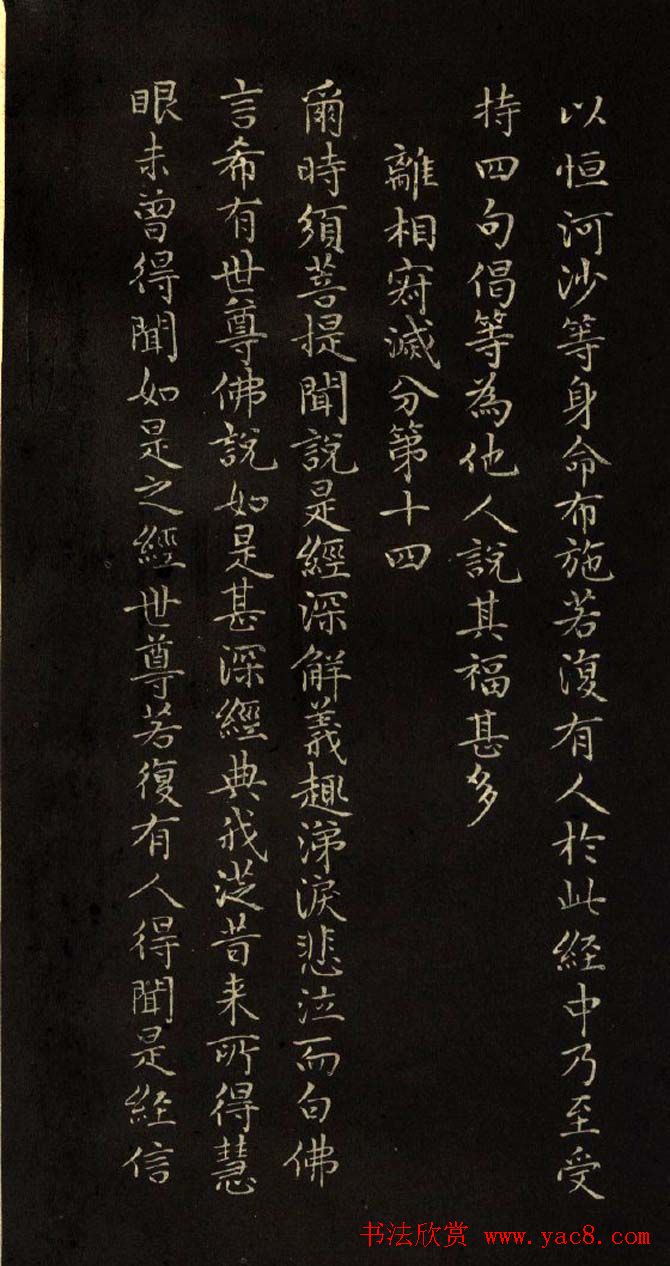 以恒河沙等身命布施若復有人於此經中乃至受
持四句偈等為他人說其福甚多
離相寂滅分第十四
爾時須菩提聞說是經深解義趣涕淚悲泣而白佛
言希有世尊佛說如是甚深經典我從昔来所得慧
眼未曾得聞如是之經世尊若復有人得聞是經信
书法欣赏 www.yac8.com